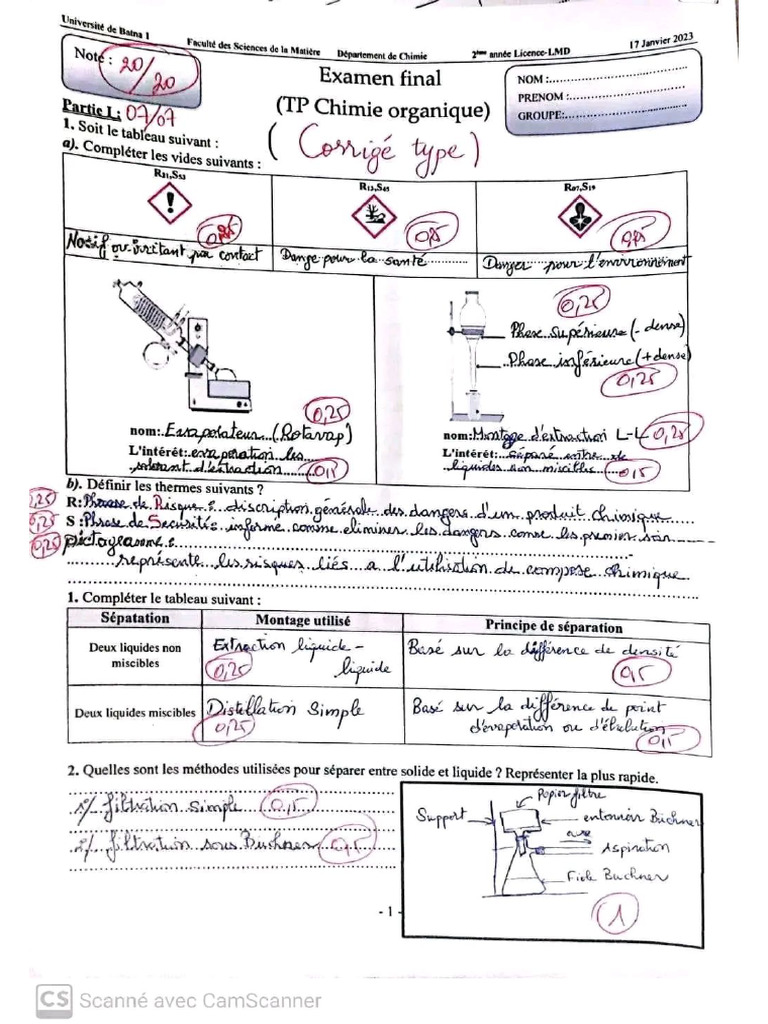 Université de Batna 1 Faculté des Sciences de la Matière Département de Chimie 2ème année Licence-LMD 17 Janvier 2023
Note : 20/20
Examen final
(TP Chimie organique)
(Corrigé type)
NOM :
PRENOM :
GROUPE:
Partie I.: 07/07
1. Soit le tableau suivant :
a). Compléter les vides suivants :
R21,S53 R13,S45 R07,S19
0,25 0,25
Nocif ou irritant par contact Dange pour la santé Danger pour l'environnement
0,25
Phase Supérieure (- dense)
Phase inférieure (+ dense)
0,25
0,25
nom: Evaporateur (Rotavap)
L'intérêt: evaporation les
solvant d'extraction 0,5
nom: Montage d'extraction L-L 0,25
L'intérêt: séparé entre de
liquides non miscibles 0,5
b). Définir les thermes suivants ?
0,25 R: Phrase de Risque : discription générale des dangers d'un produit chimique
0,25 S : Phrase de Securités informe comme eliminer les dangers
0,25 pictogramme :
représente les risques liés a l'utilisation de compose chimique
1. Compléter le tableau suivant :
Sépatation Montage utilisé Principe de séparation
Deux liquides non miscibles Extraction liquide-liquide 0,25 Basé sur la différence de densité 0,5
Deux liquides miscibles Distillation Simple 0,25 Basé sur la différence de point d'évaporation ou d'ébulution 0,5
2. Quelles sont les méthodes utilisées pour séparer entre solide et liquide ? Représenter la plus rapide.
1°/ filtration simple 0,5
2°/ filtration sous Buchner
Papier filtre
Support
entonnoir Büchner
Aspiration
Fiole Buchner
1
- 1 -
CS Scanné avec CamScanner